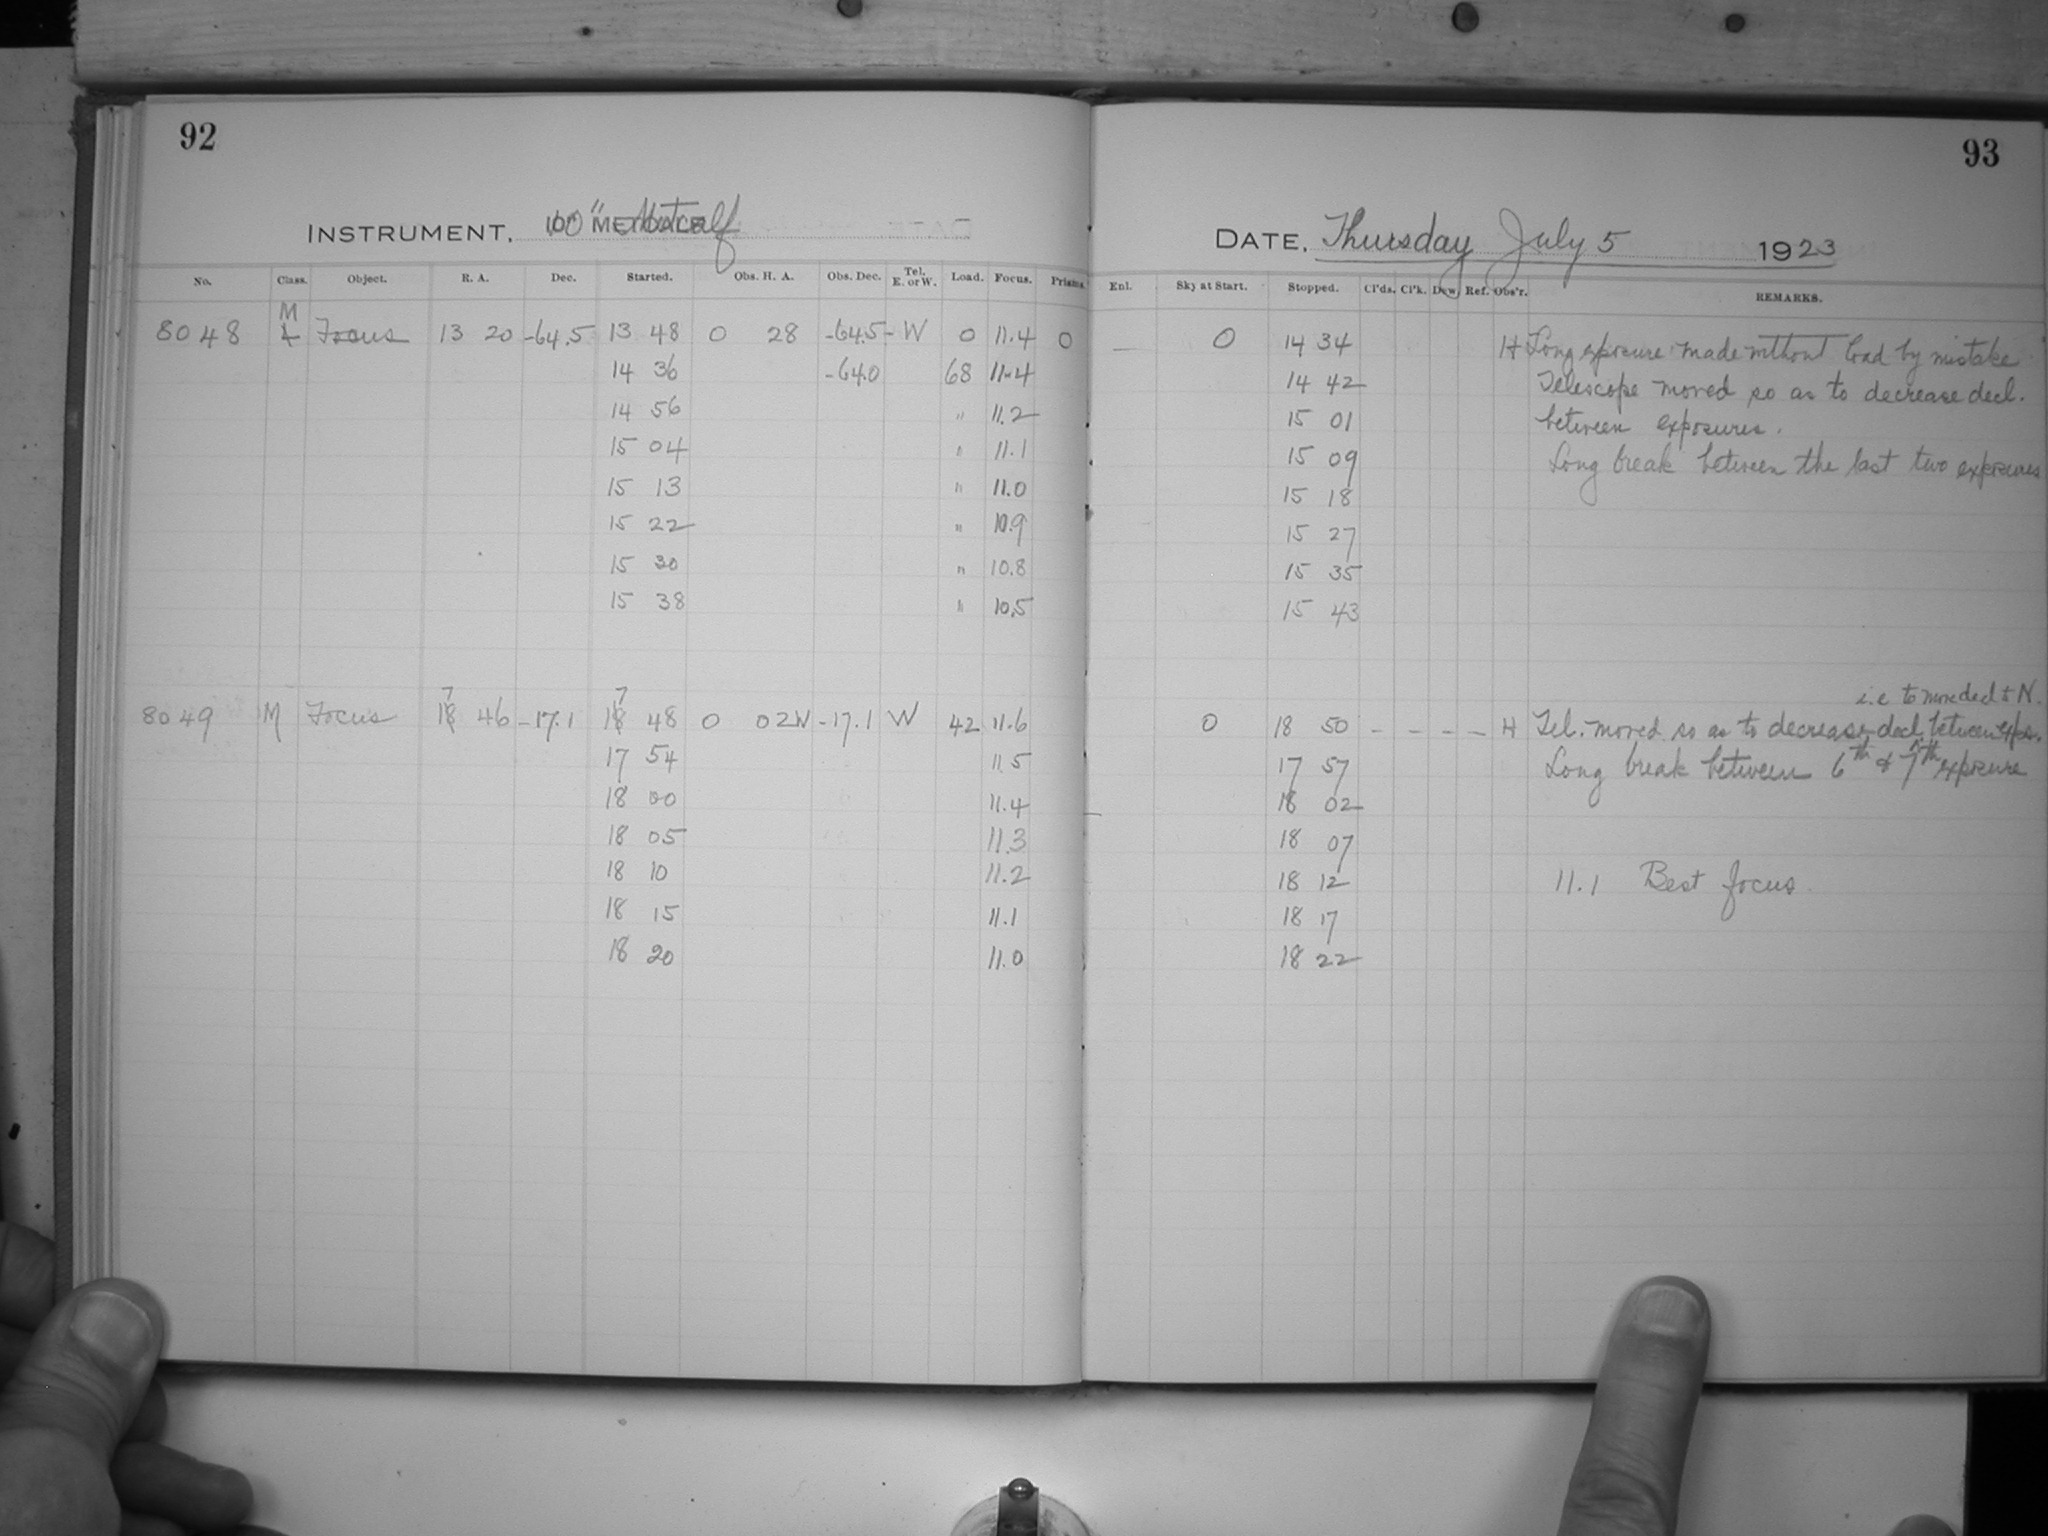 92
INSTRUMENT. 10" Metcalf
No. Class. Object. R. A. Dec. Started. Obs. H. A. Obs. Dec. Tel. E. or W. Load. Focus. Prisms.
M
8048 Focus 13 20 -64.5 13 48 0 28 -64.5 W 0 11.4 0
14 36 -64.0 68 11.4
14 56 " 11.2
15 04 " 11.1
15 13 " 11.0
15 22 " 10.9
15 30 " 10.8
15 38 " 10.5
7 7
8049 M Focus 18 46 -17.1 18 48 0 02W -17.1 W 42 11.6
17 54 11.5
18 00 11.4
18 05 11.3
18 10 11.2
18 15 11.1
18 20 11.0
93
DATE. Thursday July 5 1923
Enl. Sky at Start. Stopped. Cl'ds. Cl'k. Dew. Ref. Obs'r. REMARKS.
— 0 14 34 H Long exposure made without load by mistake
14 42 Telescope moved so as to decrease decl.
15 01 between exposures.
15 09 Long break between the last two exposures
15 18
15 27
15 35
15 43
i.e to N.
0 18 50 - - - - H Tel. moved so as to decrease decl. between exps.
17 57 Long break between 6th & 7th exposure
18 02
18 07
18 12 11.1 Best focus
18 17
18 22